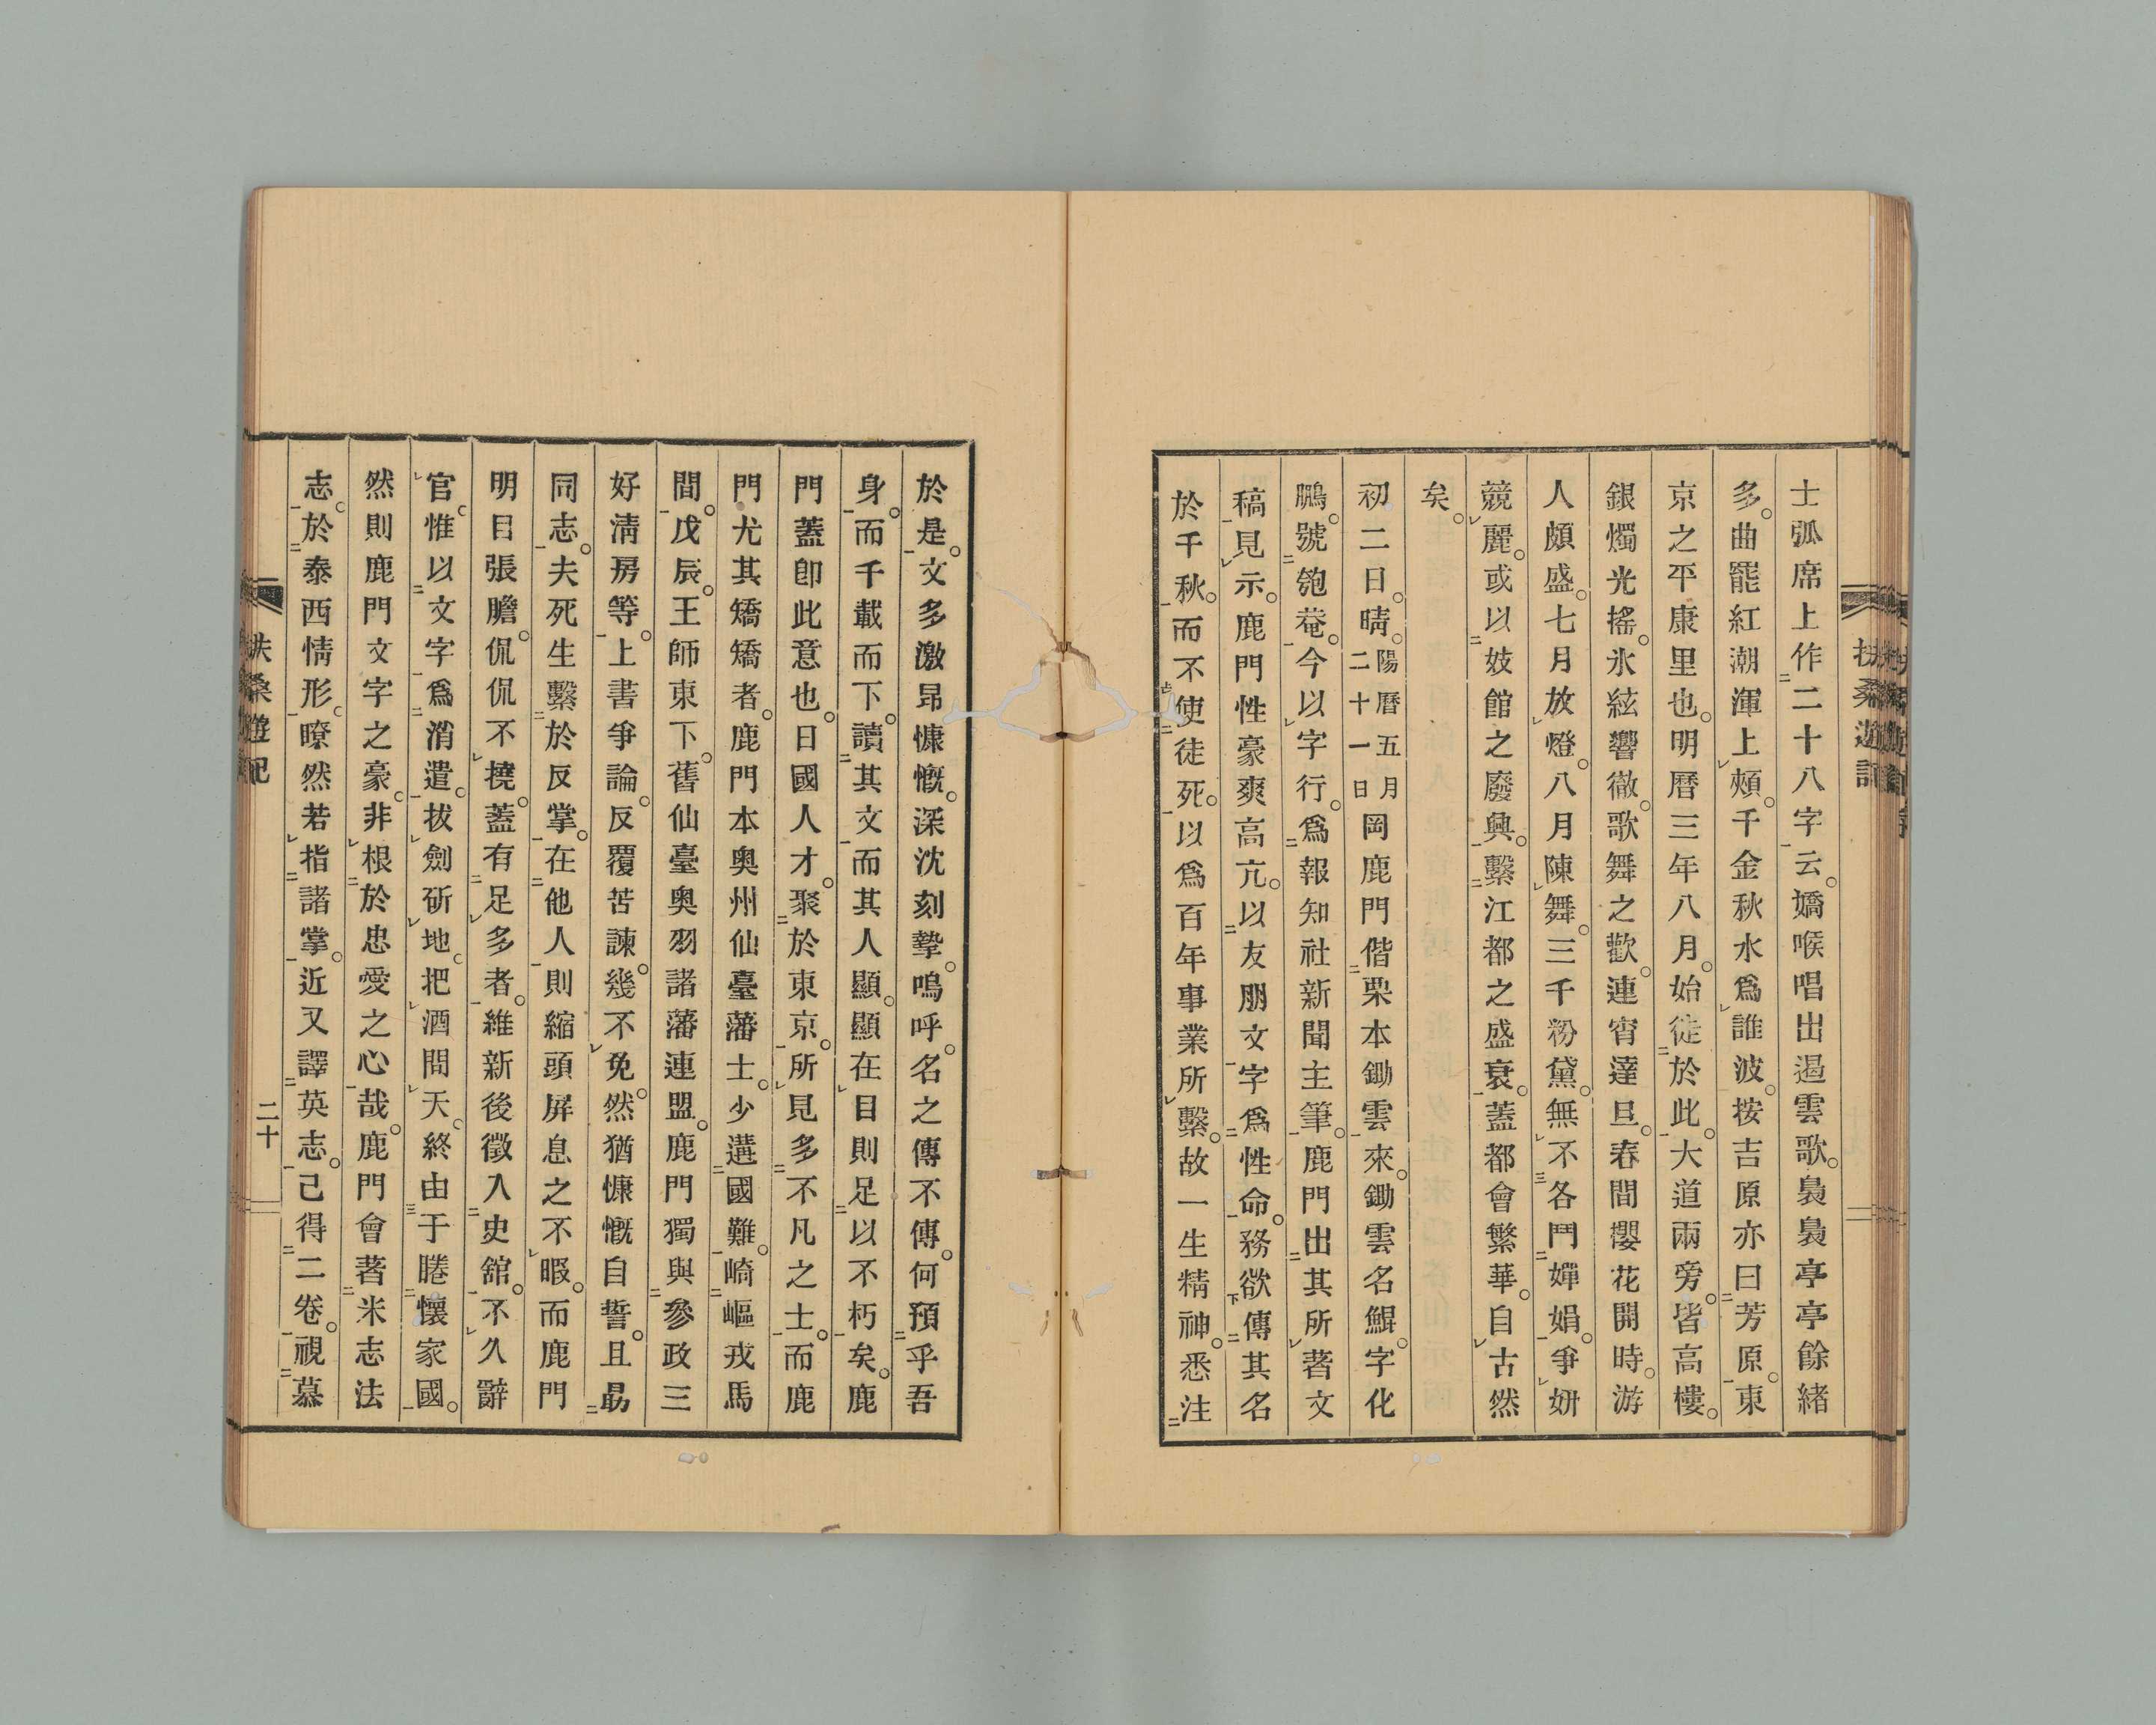 扶桑遊記
士弧席上作二十八字云。嬌喉唱出遏雲歌。裊裊亭亭餘緒
多。曲罷紅潮渾上頰。千金秋水爲誰波。按吉原亦曰芳原。東
京之平康里也。明曆三年八月。始徒於此。大道兩旁。皆高樓。
銀燭光搖。氷絃響徹。歌舞之歡。連宵達旦。春間櫻花開時。游
人頗盛。七月放燈。八月陳舞。三千粉黛。無不各鬥嬋娟。爭妍
競麗。或以妓館之廢興。繫江都之盛衰。蓋都會繁華。自古然
矣。
初二日。晴。陽曆五月二十一日岡鹿門偕栗本鋤雲來。鋤雲名鯤。字化
鵬。號匏菴。今以字行。爲報知社新聞主筆。鹿門出其所著文
稿見示。鹿門性豪爽高亢。以友朋文字爲性命。務欲傳其名
於千秋。而不使徒死。以爲百年事業所繫。故一生精神。悉注
於是。文多激昂慷慨。深沈刻摯。嗚呼。名之傳不傳。何預乎吾
身。而千載而下。讀其文而其人顯。顯在目則足以不朽矣。鹿
門蓋卽此意也。日國人才。聚於東京。所見多不凡之士。而鹿
門尤其矯矯者。鹿門本奧州仙臺藩士。少遘國難。崎嶇戎馬
間。戊辰。王師東下。舊仙臺奧羽諸藩連盟。鹿門獨與參政三
好淸房等。上書爭論。反覆苦諫。幾不免。然猶慷慨自誓。且勗
同志。夫死生繫於反掌。在他人則縮頭屛息之不暇。而鹿門
明目張膽。侃侃不撓。蓋有足多者。維新後徵入史舘。不久辭
官。惟以文字爲消遣。拔劍斫地。把酒問天。終由于睠懷家國。
然則鹿門文字之豪。非根於忠愛之心哉。鹿門會著米志法
志。於泰西情形。瞭然若指諸掌。近又譯英志。己得二卷。視慕
扶桑遊記
二十